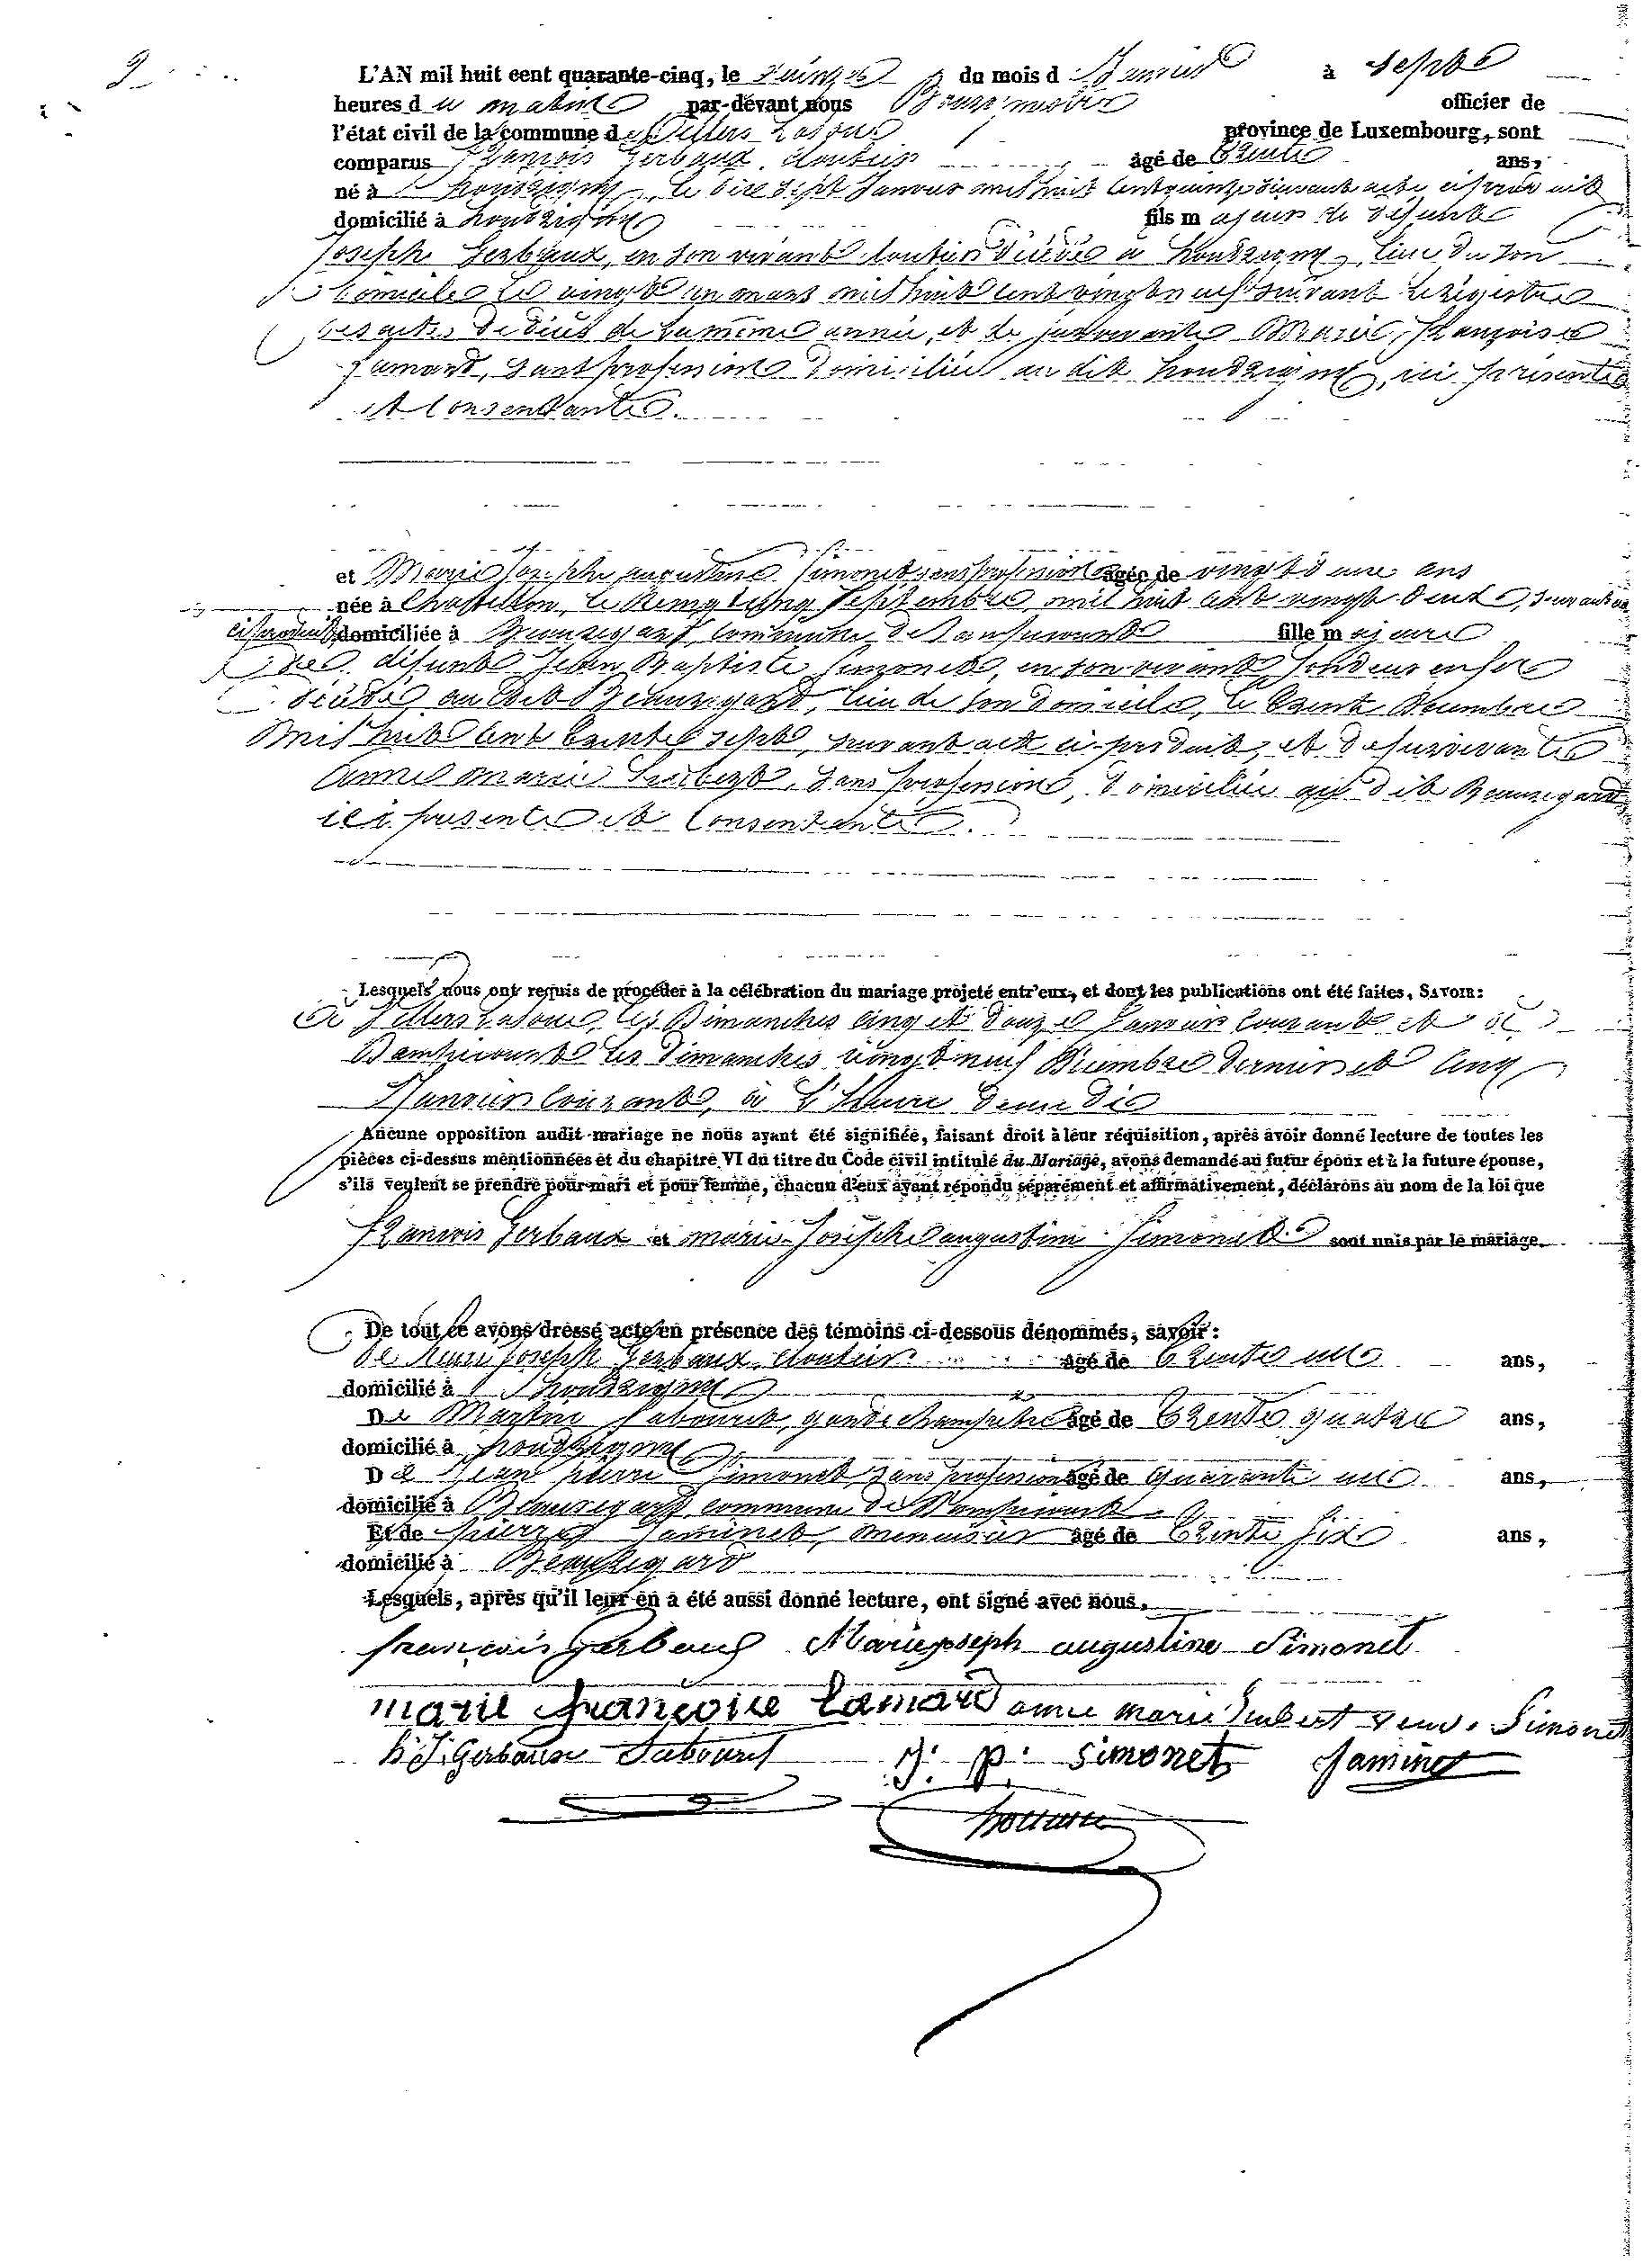 2
L'AN mil huit cent quarante-cinq, le quinze du mois d Janvier à sept
heures d u matin par-devant nous Bourgmestre officier de
l'état civil de la commune de Villers Laloue province de Luxembourg, sont
comparus François Gerbaux, cloutier âgé de trente ans,
né à houdrigny, le dix sept Janvier mil huit cent quinze suivant acte ci produit
domicilié à houdrigny fils m ajeur de défunt
Joseph Gerbaux, en son vivant cloutier décédé à houdrigny, lieu du son
domicile le vingt un mars mil huit cent vingt neuf suivant le registre
des actes de décès de la même année, et de survivante Marie Françoise
Lamard, sans profession domiciliée au dit houdrigny, ici présente
et Consentante.
et Marie Josephe augustine Simonet, sans profession âgée de vingt deux ans
née à Chatillon, le vingt cinq Septembre mil huit cent vingt deux, suivant acte
ci produit, domiciliée à Beauregard, commune de Dampicourt fille m ajeure
de défunt Jean Baptiste Simonet, en son vivant fondeur en fer
décédé au dit Beauregard, lieu de son domicile, le trente Décembre
mil huit cent trente sept, suivant acte ci-produit, et de survivante
anne marie Imbert, sans profession, domiciliée au dit Beauregard
ici présente et Consentante.
Lesquels nous ont requis de procéder à la célébration du mariage projeté entr'eux, et dont les publications ont été faites, SAVOIR:
à Villers Laloue, les Dimanches cinq et douze Janvier courant et à
Dampicourt les dimanches vingt neuf Décembre dernier et cinq
Janvier courant, à l'heure de midi
Aucune opposition audit mariage ne nous ayant été signifiée, faisant droit à leur réquisition, après avoir donné lecture de toutes les
pièces ci-dessus mentionnées et du chapitre VI du titre du Code civil intitulé du Mariage, avons demandé au futur époux et à la future épouse,
s'ils veulent se prendre pour mari et pour femme, chacun d'eux ayant répondu séparément et affirmativement, déclarons au nom de la loi que
François Gerbaux et marie Josephe augustine Simonet sont unis par le mariage.
De tout ce avons dressé acte en présence des témoins ci-dessous dénommés, savoir:
de henri Joseph Gerbaux cloutier âgé de trente un ans,
domicilié à houdrigny
De Martin Sabouret, garde champêtre âgé de trente quatre ans,
domicilié à houdrigny
De Jean pierre Simonet sans profession âgé de quarante un ans,
domicilié à Beauregard commune de Dampicourt
Et de pierre Jaminet, menuisier âgé de trente six ans,
domicilié à Beauregard
Lesquels, après qu'il leur en a été aussi donné lecture, ont signé avec nous.
françois Gerbaux Marie joseph augustine Simonet
marie françoise Lamard anne marie Imbert veuve Simonet
h. J. Gerbaux Sabouret J. p. Simonet Jaminet